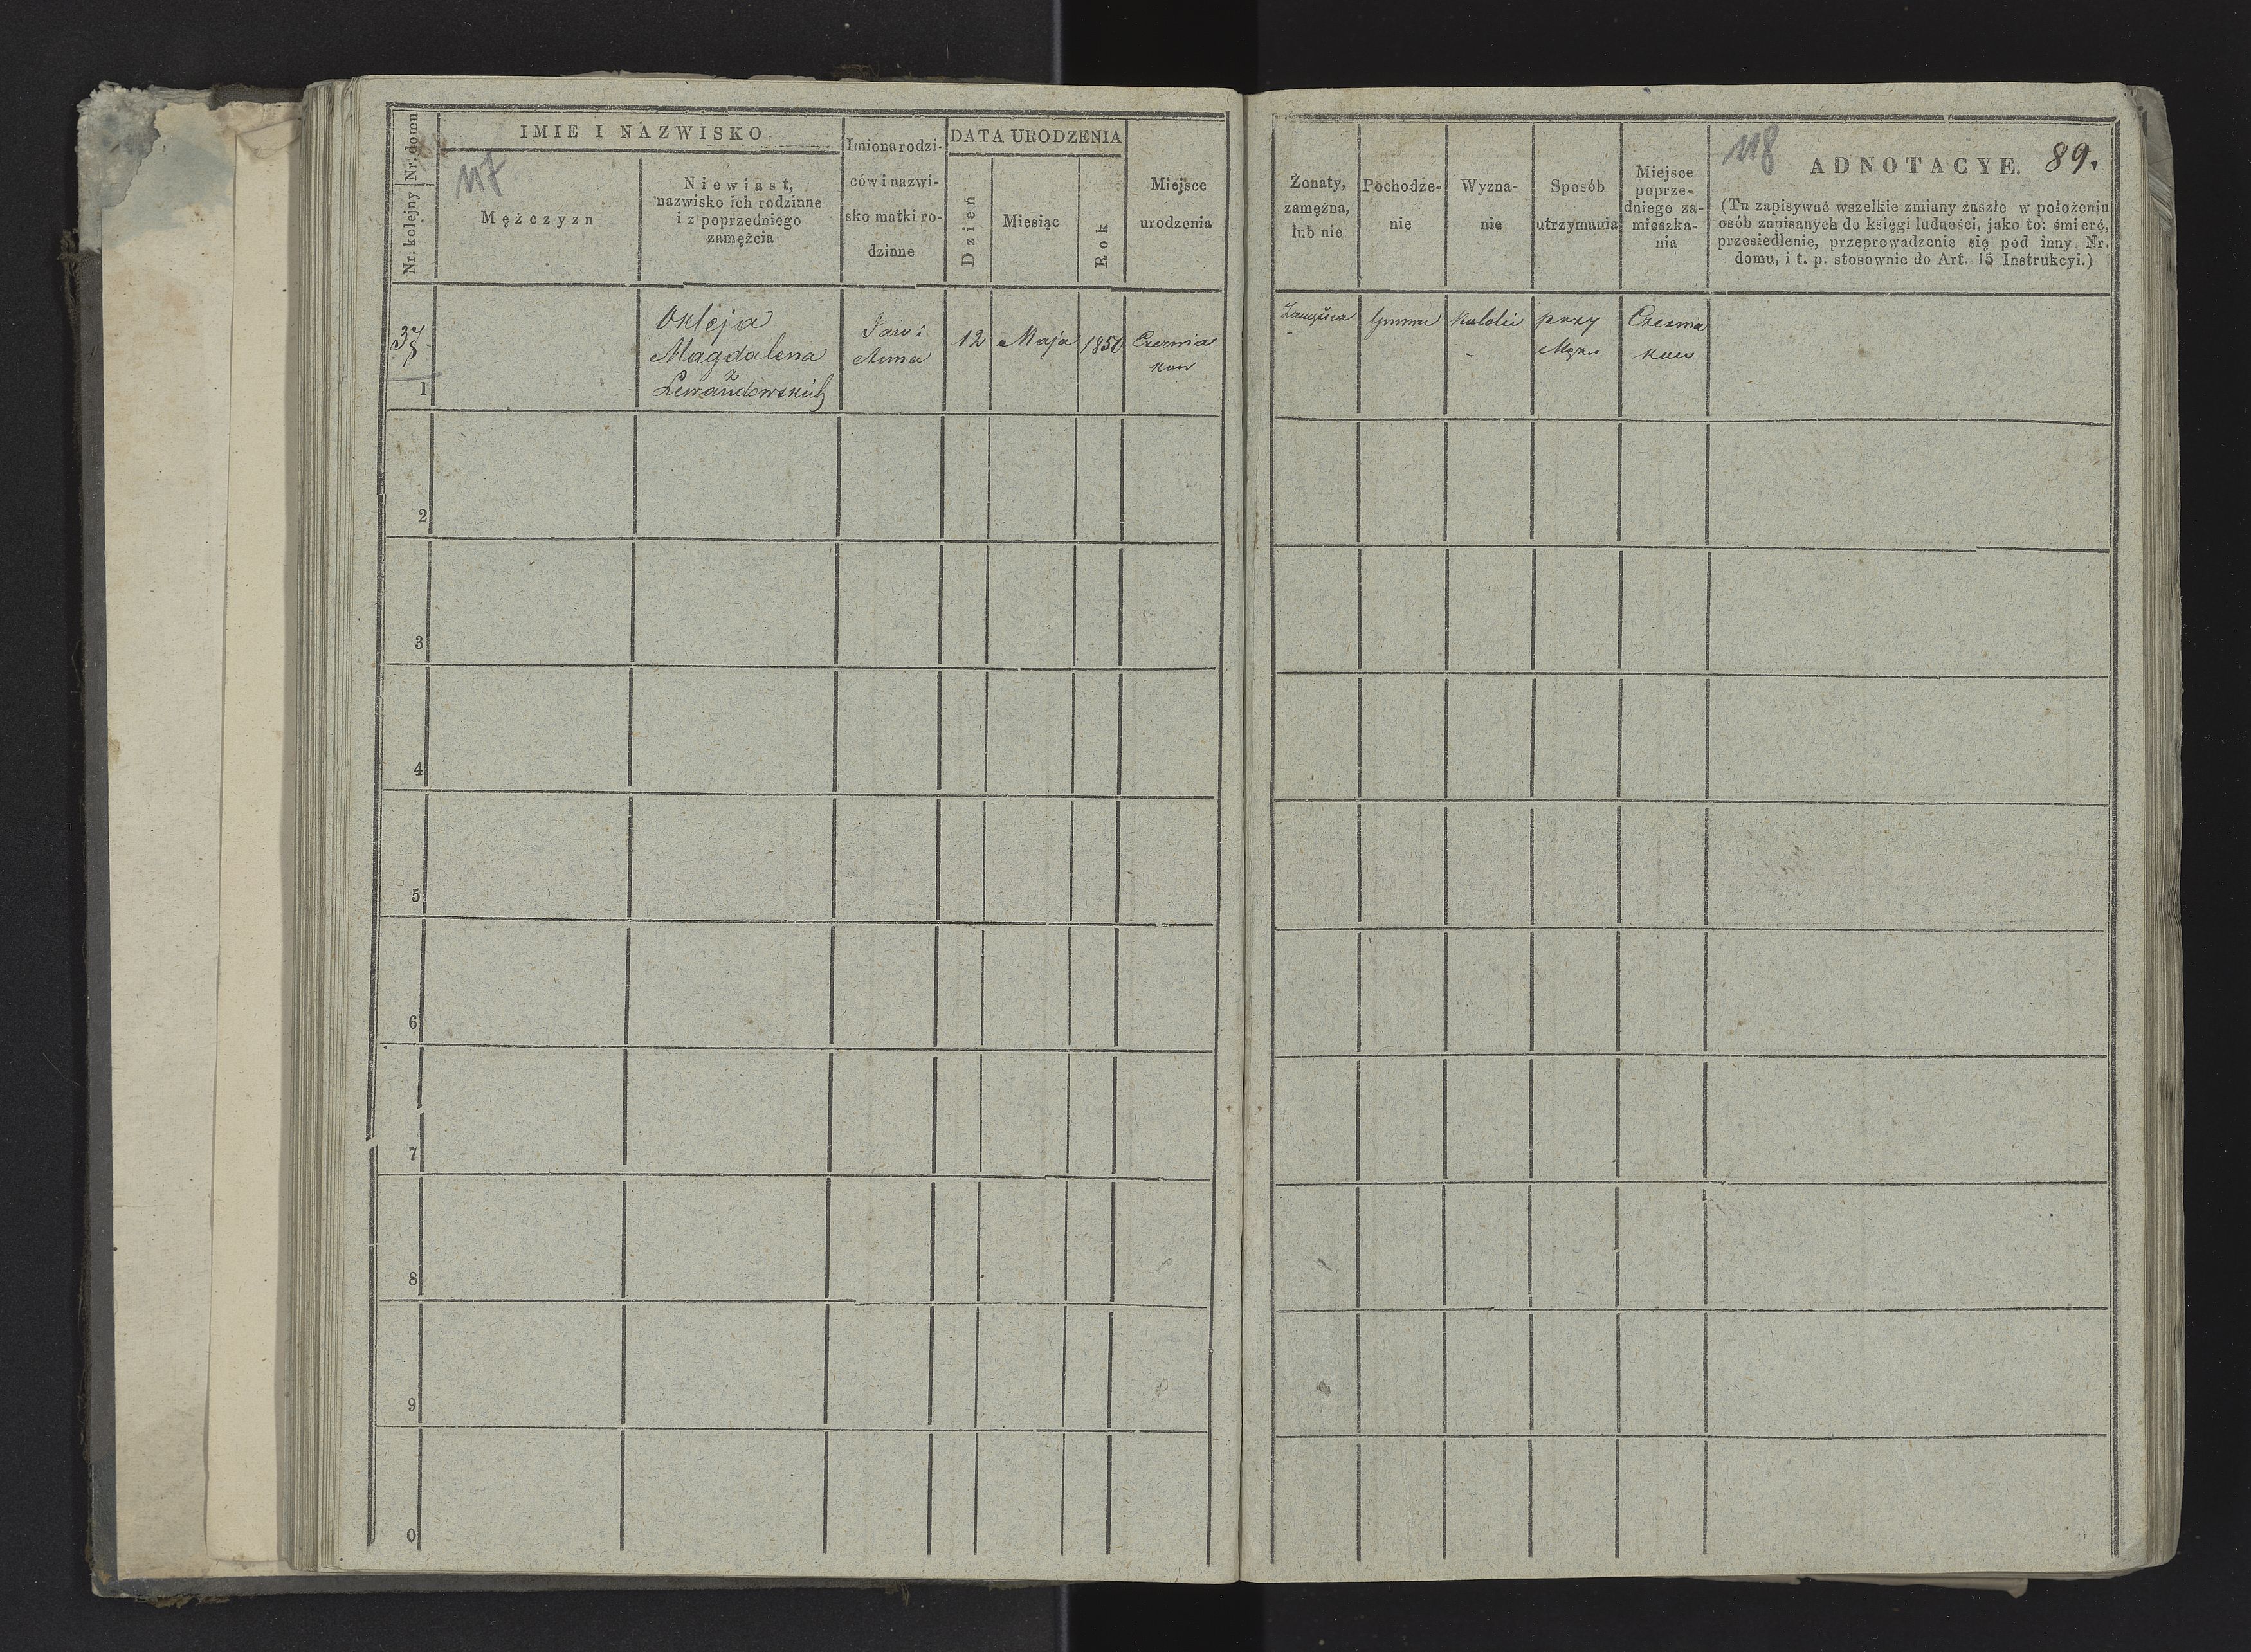 Nr. domu
Nr. kolejny
117
IMIE I NAZWISKO
Mężczyzn
Niewiast,
nazwisko ich rodzinne
i z poprzedniego
zamężcia
Imiona rodzi-
ców i nazwi-
sko matki ro-
dzinne
DATA URODZENIA
Dzień
Miesiąc
Rok
Miejsce
urodzenia
37
1
Okleja
Magdalena
z
Lewandowskich
Jan i
Anna
12
Maja
1850
Czernia
kow
2
3
4
5
6
7
8
9
0
Żonaty,
zamężna,
lub nie
Pochodze-
nie
Wyzna-
nie
Sposób
utrzymania
Miejsce
poprze-
dniego za-
mieszka-
nia
118
ADNOTACYE.
89.
(Tu zapisywać wszelkie zmiany zaszłe w położeniu
osób zapisanych do księgi ludności, jako to: śmierć,
przesiedlenie, przeprowadzenie się pod inny Nr.
domu, i t. p. stosownie do Art. 15 Instrukcyi.)
przy
Mężu
Czernia
kow